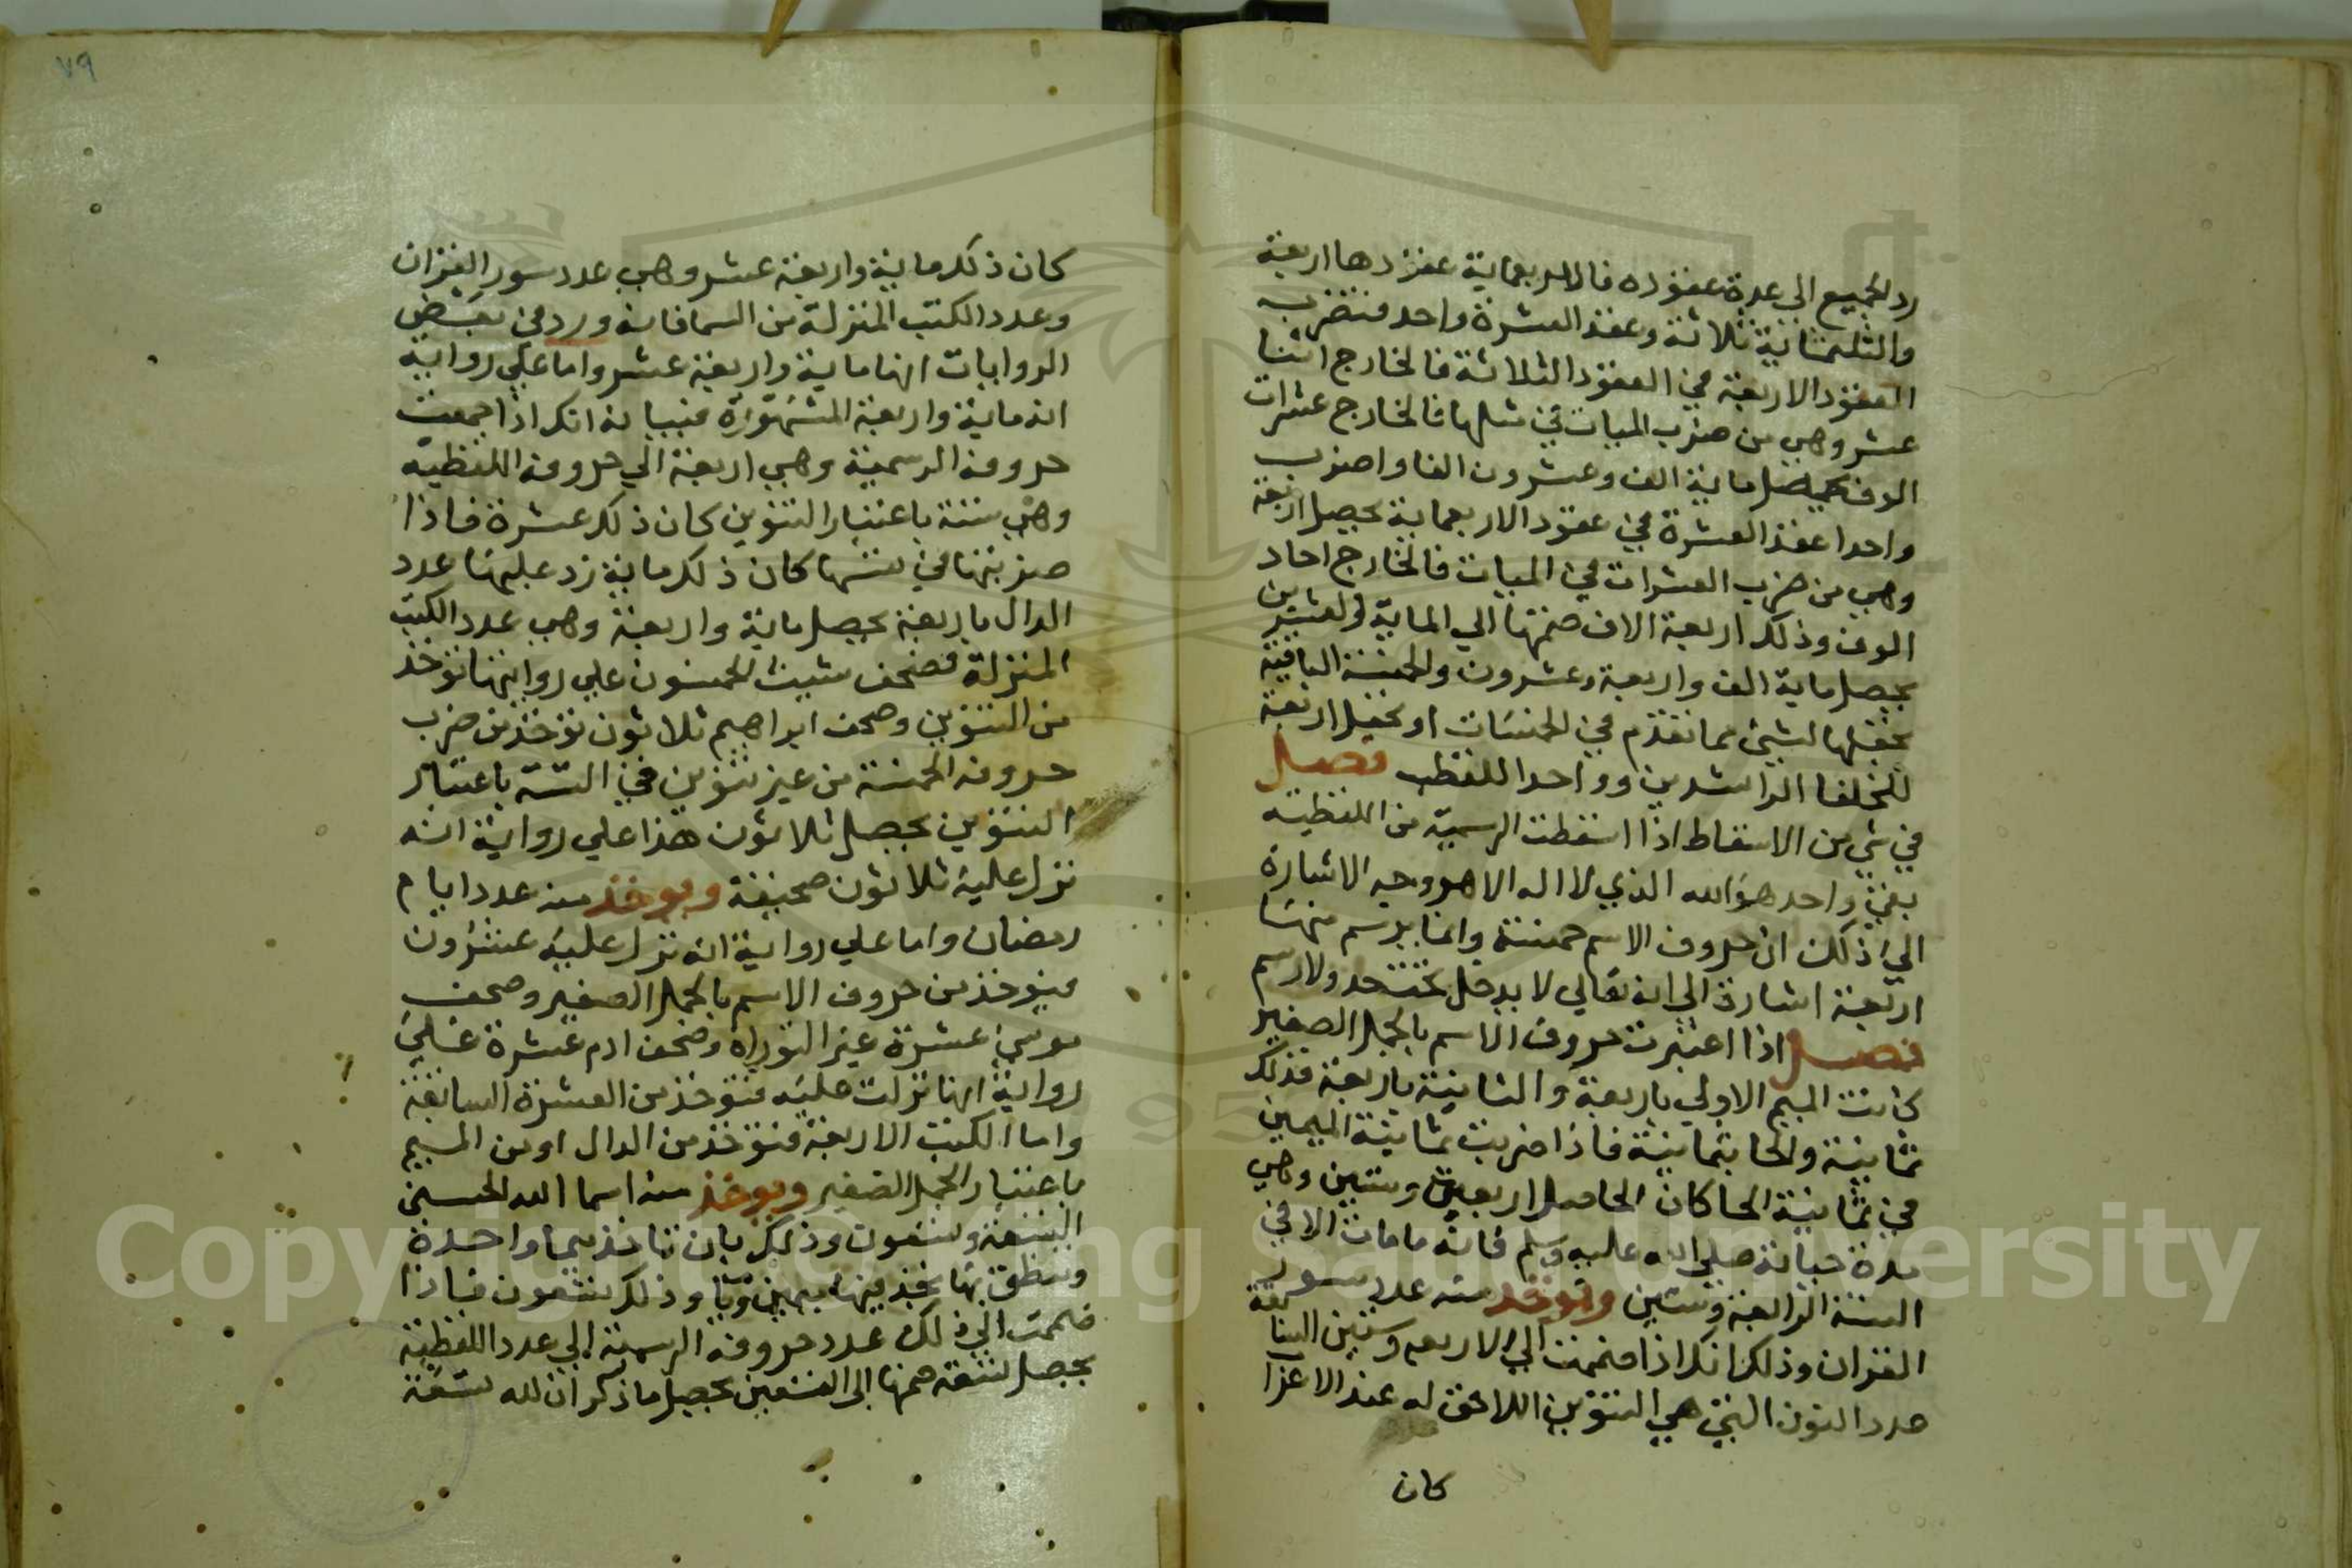 رد الجميع الي عدة عقوده فالاربعماية عقودها اربعة
والثلثماية ثلاثة وعقد العشرة واحد فتضرب
العقود الاربعة في العقود الثلاثة فالخارج اثنا
عشر وهي من ضرب الميات في مثلها فالخارج عشرات
الوف يحصل ماية الف وعشرون الفا واضرب
واحدا عقد العشرة في عقود الاربعماية يحصل اربعة
وهي من ضرب العشرات في الميات فالخارج احاد
الوف وذلك اربعة الاف ضمتها الي الماية والعشرين
يحصل ماية الف واربعة وعشرون والخمسة الباقية
تجعلها لشي مما تقدم في الخمسات او تجعل اربعة
للخلفا الراشدين وواحدا للقطب فصل
في شي من الاسقاط اذا اسقطت الرسمية من اللفظية
بقي واحد هو الله الذي لا اله الا هو وجه الاشارة
الي ذلك ان حروف الاسم خمسة وانما يرسم منها
اربعة اشارة الي انه تعالي لا يدخل تحت حد ولا رسم
فصل اذا اعتبرت حروف الاسم بالجمل الصغير
كانت الميم الاولي باربعة والثانية باربعة فذلك
ثمانية والحا بثمانية فاذا ضربت ثمانية الميمين
في ثمانية الحا كان الحاصل اربعة وستين وهي
مدة حياته صلي الله عليه وسلم فانه ما مات الا في
السنة الرابعة وستين وتوخذ منه عدد سور
القران وذلك انك اذا ضممت الي الاربعة وستين السابقة
عدد النون التي هي التنوين اللاحق له عند الاعراب
كان
٧٩
كان ذلك ماية واربعة عشر وهي عدد سور القران
وعدد الكتب المنزلة من السما فانه ورد في بعض
الروايات انها ماية واربعة عشر واما علي رواية
انه ماية واربعة المشهورة فبيانه انك اذا جمعت
حروفه الرسمية وهي اربعة الي حروفه اللفظية
وهي ستة باعتبار التنوين كان ذلك عشرة فاذا
ضربتها في نفسها كان ذلك ماية زد عليها عدد
الدال باربعة يحصل ماية واربعة وهي عدد الكتب
المنزلة فصحف شيث الخمسون علي روايتها توخذ
من التنوين وصحف ابراهيم ثلاثون توخذ من ضرب
حروفه الخمسة من غير تنوين في الستة باعتبار
التنوين يحصل ثلاثون هذا علي رواية انه
نزل عليه ثلاثون صحيفة ويوخذ منه عدد ايام
رمضان واما علي رواية انه نزل عليه عشرون
فيوخذ من حروف الاسم بالجمل الصغير وصحف
موسي عشرة غير التوراة وصحف ادم عشرة علي
رواية انها نزلت عليه فتوخذ من العشرة السابقة
واما الكتب الاربعة فتوخذ من الدال او من الميم
باعتبار الجمل الصغير ويوخذ منه اسما الله الحسني
التسعة وتسعون وذلك بان تاخذ ميما واحدة
وتنطق بها تجد فيها ميمين ويا وذلك تسعون فاذا
ضممت الي ذلك عدد حروفه الرسمية الي عدد اللفظية
يحصل تسعة ضمها الي التسعين يحصل ما ذكر ان لله تسعة